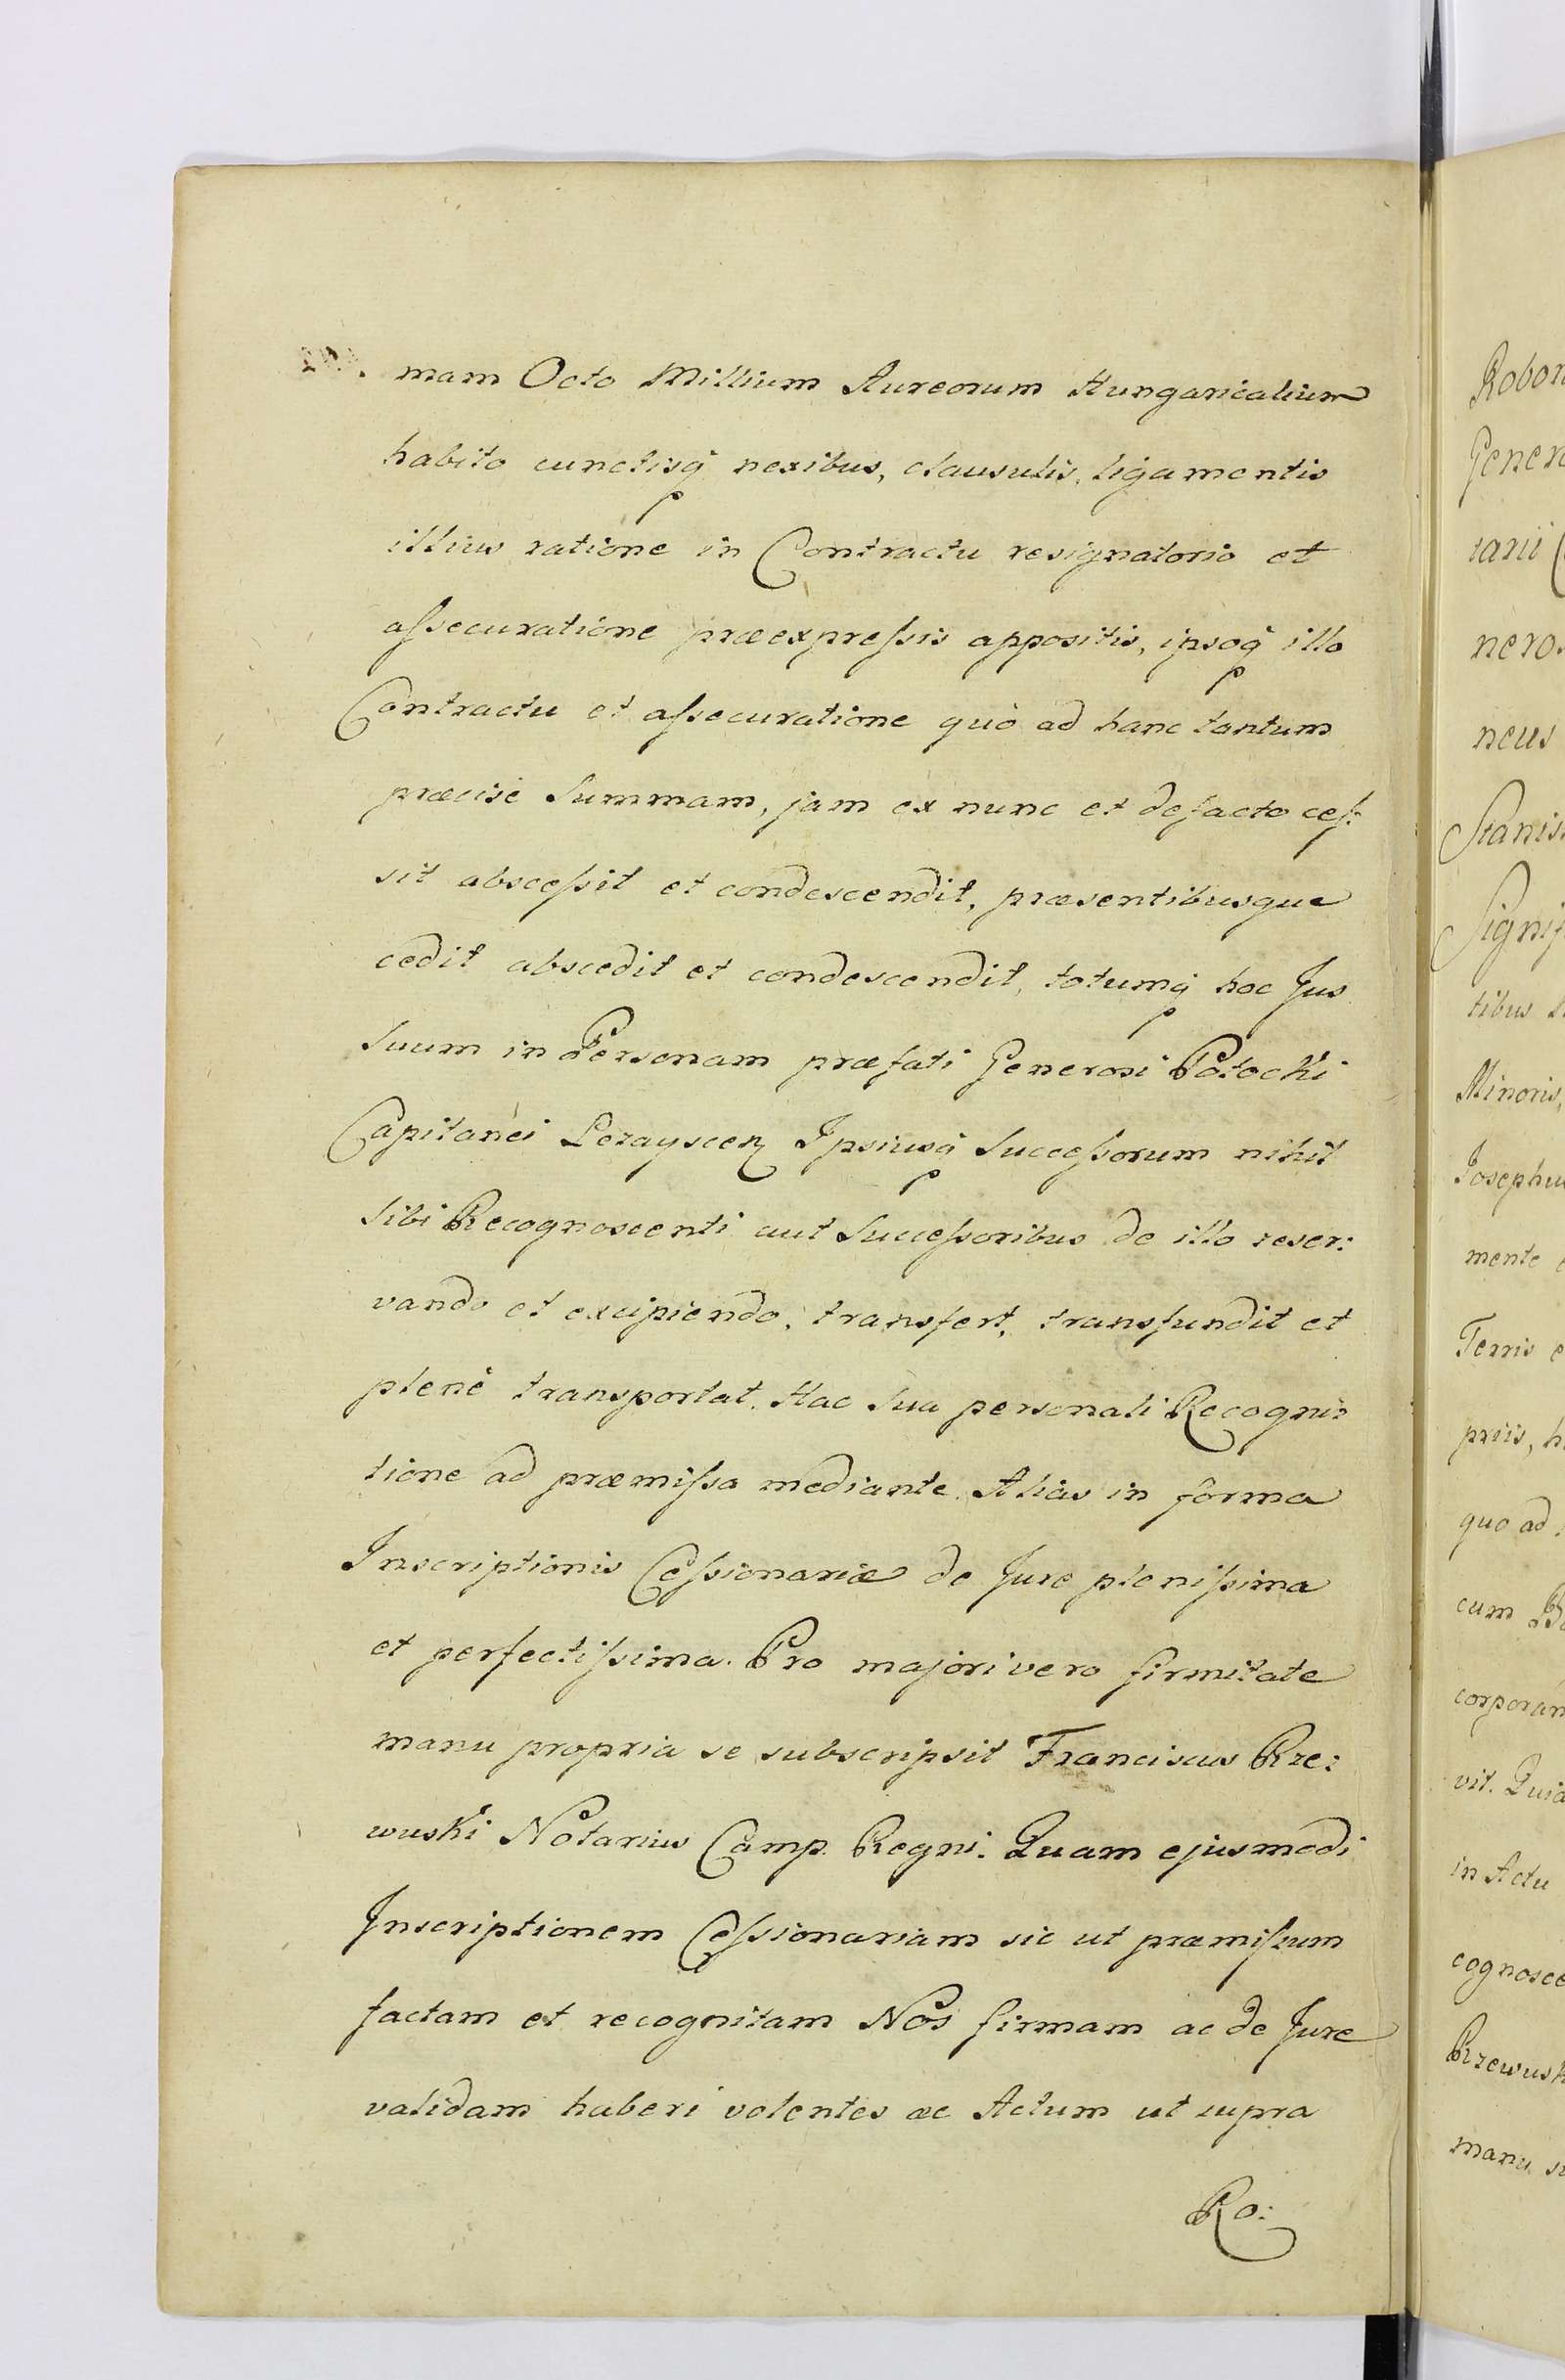 mam Octo Millium Aureorum Hungaricalium
habito cunctisq̃ nexibus, clausulis, ligamentis
illius ratione in Contractu resignatorio et
aſsecuratione præexpreſsis appositis, ipsoq̃ illo
Contractu et aſsecuratione quò ad hanc tantum
præcisè Summam, jam ex nunc et defacto ceſ:
sit absceſsit et condescendit, præsentibusque
cedit abscedit et condescendit, totumq̃ hoc Jus
Suum in Personam præfati Generosi Potocki
Capitanei Lezayscen Ipsiusq̃ Succeſsorum nihil
Sibi Recognoscenti aut Succeſsoribus de illo reser:
vando et excipiendo, transfert, transfundit et
plenè transportat. Hac Sua personali Recogni:
tione ad præmiſsa mediante. Alias in forma
Inscriptionis Ceſsionariæ de Jure pleniſsima
et perfectiſsima. Pro majori vero firmitate
manu propria se subscripsit Franciscus Rze:
wuski Notarius Camp. Regni. Quam ejusmodi
Inscriptionem Ceſsionariam sic ut præmiſsum
factam et recognitam Nos firmam ac de Jure
validam haberi volentes ac Actum ut supra
Ro:
Gener
nero
neus
Stanis
Signif
tibus
Minoris,
Josephu
mente
Terris
priis, h
quo ad
cum
corporan
vit. Quia
in Actu
cognosce
Rzewusk
manu